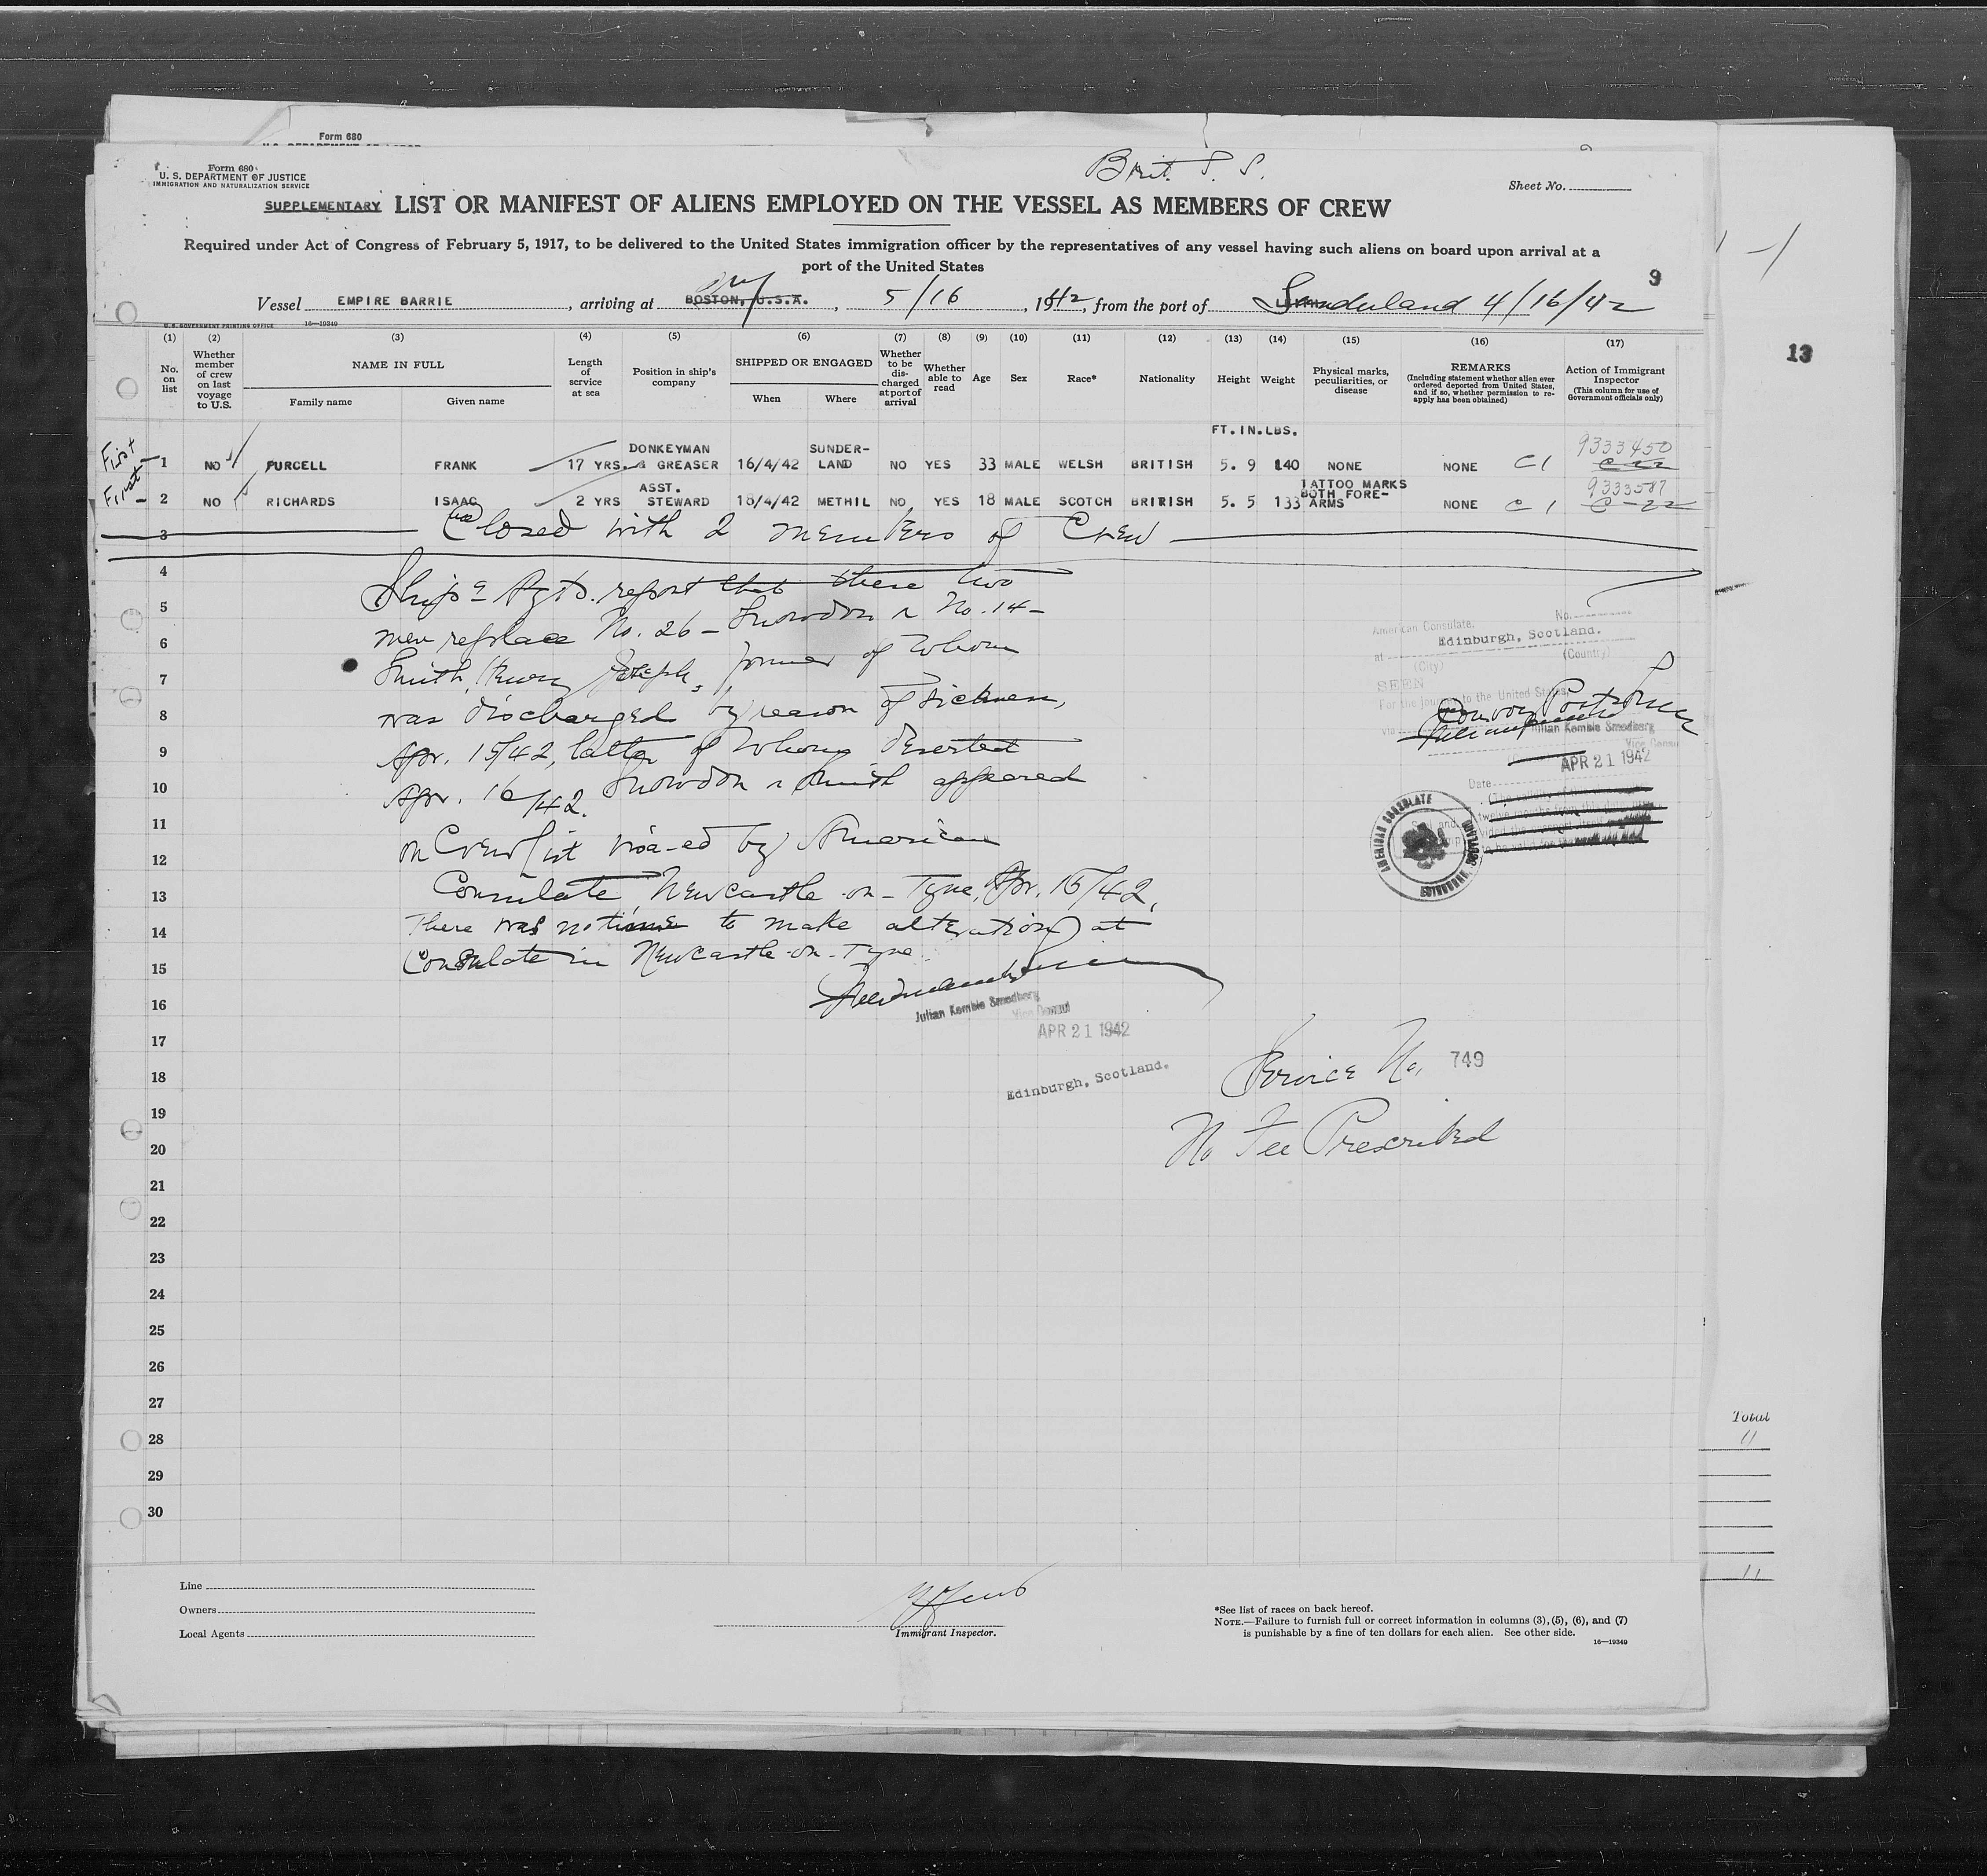 Form 680
Form 680
U. S. DEPARTMENT OF JUSTICE
IMMIGRATION AND NATURALIZATION SERVICE
Brit. S. S.
Sheet No.
SUPPLEMENTARY LIST OR MANIFEST OF ALIENS EMPLOYED ON THE VESSEL AS MEMBERS OF CREW
Required under Act of Congress of February 5, 1917, to be delivered to the United States immigration officer by the representatives of any vessel having such aliens on board upon arrival at a
port of the United States
9
Vessel EMPIRE BARRIE, arriving at BOSTON, U.S.A., 5/16, 1942, from the port of Sunderland 4/16/42
U. S. GOVERNMENT PRINTING OFFICE 16—19349
13
(1) (2) (3) (4) (5) (6) (7) (8) (9) (10) (11) (12) (13) (14) (15) (16) (17)
No. on list
Whether member of crew on last voyage to U.S.
NAME IN FULL
Family name
Given name
Length of service at sea
Position in ship's company
SHIPPED OR ENGAGED
When
Where
Whether to be discharged at port of arrival
Whether able to read
Age
Sex
Race*
Nationality
Height
Weight
Physical marks, peculiarities, or disease
REMARKS
(Including statement whether alien ever ordered deported from United States, and if so, whether permission to reapply has been obtained)
Action of Immigrant Inspector
(This column for use of Government officials only)
FT. IN. LBS.
First 1 NO PURCELL FRANK 17 YRS. DONKEYMAN & GREASER 16/4/42 SUNDER-LAND NO YES 33 MALE WELSH BRITISH 5. 9 140 NONE NONE C1 9333450
First 2 NO RICHARDS ISAAC 2 YRS ASST. STEWARD 18/4/42 METHIL NO YES 18 MALE SCOTCH BRIRISH 5. 5 133 TATTOO MARKS BOTH FORE-ARMS NONE C1 9333587 C-22
3 Closed with 2 members of Crew
4
Ship's Agts. report that these two
5
men replace No. 26 - Snowdon & No. 14 -
6
Smith, Joseph, former of whom
7
was discharged by reason of sickness,
8
Apr. 15/42, latter of whom deserted
9
Apr. 16/42. Snowdon & Smith appeared
10
11
on Crew list visa-ed by American
12
Consulate, Newcastle-on-Tyne, Apr. 15/42.
13
There was no time to make alteration at
14
Consulate in Newcastle-on-Tyne.
15
16
Julian Kemble Smedberg
Vice Consul
17
APR 21 1942
18
Edinburgh, Scotland.
Service No. 749
19
No Fee Prescribed
20
21
22
23
24
25
26
27
28
29
30
American Consulate.
No.
at Edinburgh, Scotland.
(City) (Country)
SEEN
For the journey to the United States
via
Julian Kemble Smedberg
Vice Consul
APR 21 1942
Date
AMERICAN CONSULATE
EDINBURGH, SCOTLAND
Total
11
11
Line
Owners
Local Agents
Immigrant Inspector.
*See list of races on back hereof.
NOTE.—Failure to furnish full or correct information in columns (3), (5), (6), and (7)
is punishable by a fine of ten dollars for each alien. See other side.
16—19349